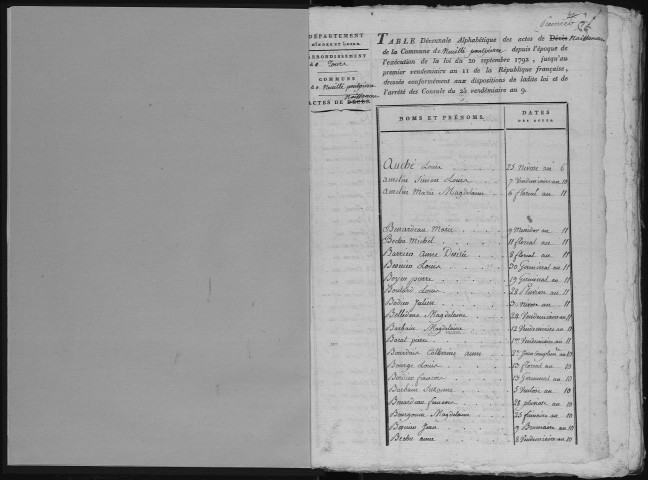 DÉPARTEMENT
D'INDRE ET LOIRE.
ARRONDISSEMENT
de Tours
COMMUNE
de Neuillé pontpierre
Naissances
ACTES DE DÉCÈS.
TABLE Décennale Alphabétique des actes de Décès Naissances
de la Commune de Neuillé pontpierre depuis l'époque de
l'exécution de la loi du 20 septembre 1792, jusqu'au
premier vendemiaire an 11 de la République française,
dressée conformément aux dispositions de ladite loi et de
l'arrêté des Consuls du 25 vendémiaire an 9.
NOMS ET PRÉNOMS. DATES
DES ACTES.
Auché Louis 25 Nivose an 6
amelin Simon Louis 7 Vendemiaire an 10
amelin Marie Magdelaine 6 floreal an 10
Berardeau Marie 9 Messidor an 11
Michel 11 floreal an 11
Barrier Anne Désirée 8 floreal an 11
Besnier Louis 30 Germinal an 11
Boyer pierre 19 Germinal an 11
Boulard Louis 28 Pluviose an 11
Julien nivose an 11
Magdelaine 24 Vendemiaire an 11
Barbain Magdelaine 12 Vendemiaire an 11
Barat pierre 1er Vendemiaire an 11
Bourdais Catherine anne an 10
Bourge Louis 13 floreal an 10
francois 13 Germinal an 10
Barbain Suzanne 5 Ventose an 10
Berardeau francois 28 pluviose an 10
Bourgouin Magdelaine 25 frimaire an 10
Besnier Jean 9 Brumaire an 10
anne 8 Vendemiaire an 10